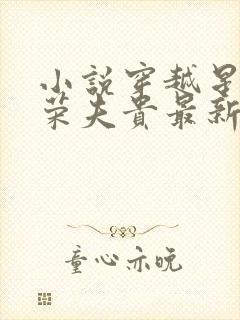 小說穿越星
榮夫貴最新
童心亦晚